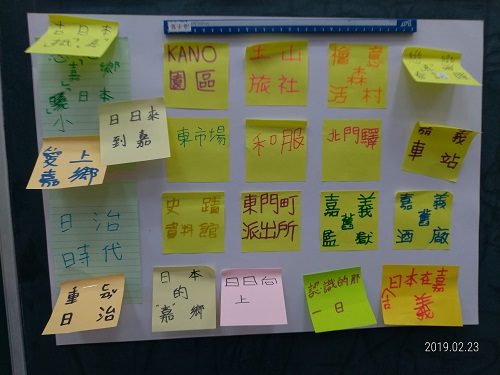 KANO
園區
土山
旅社
檜意
森
活村
日日來
到嘉
東市場
和服
北門驛
嘉義
車站
愛上
嘉鄉
日治
時代
史蹟
資料館
東門町
派出所
嘉義
舊
監獄
嘉義
舊
酒廠
重武
日治
日本
的
"嘉"鄉
日日向
上
認識的那
一日
日本在嘉
義
2019.02.23